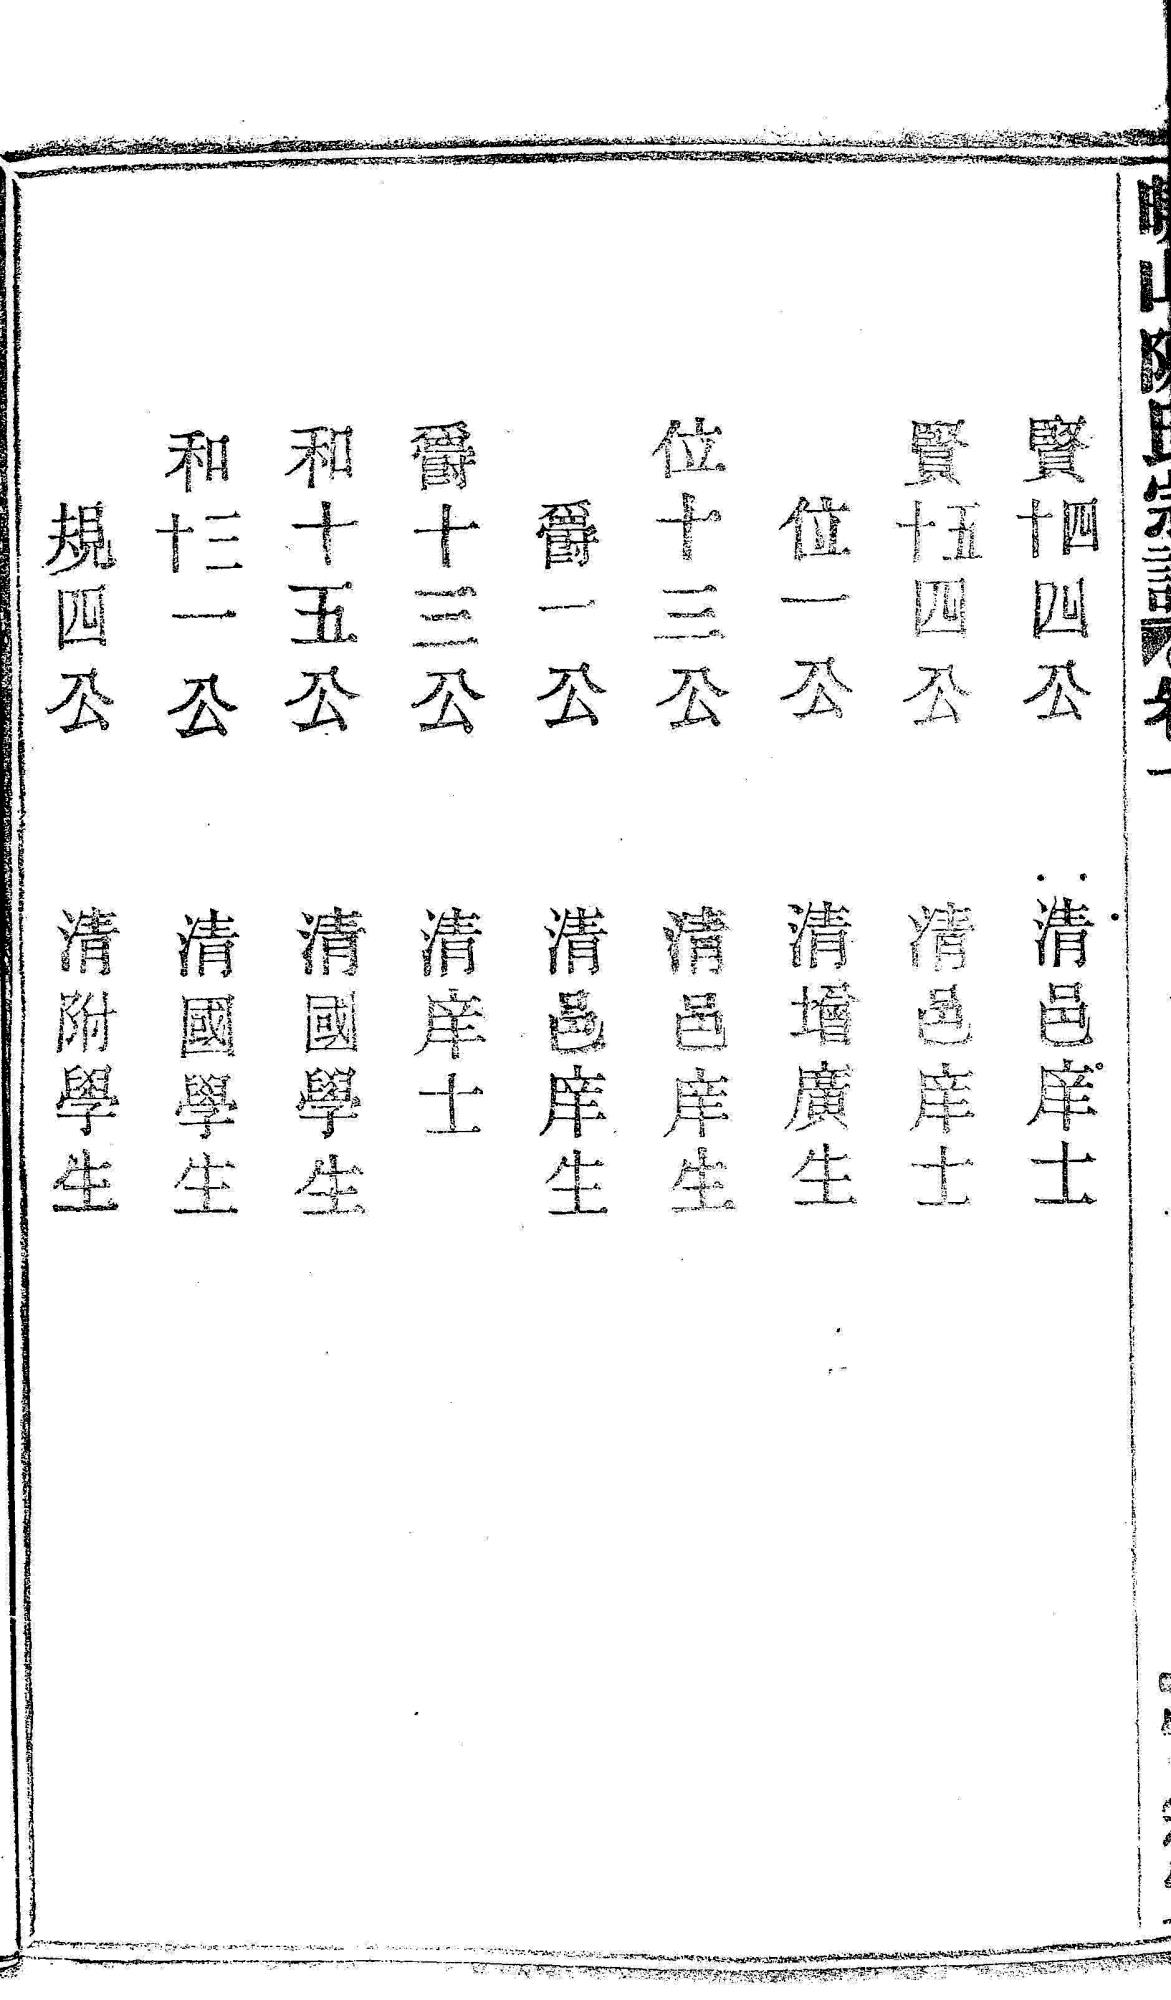 山陳氏宗譜 卷一
賢四十四公 清邑庠士
賢五十四公 清邑庠士
位一公 清增廣生
位十三公 清邑庠生
爵一公 清邑庠生
爵十三公 清庠士
和十五公 清國學生
和三十一公 清國學生
規四公 清附學生